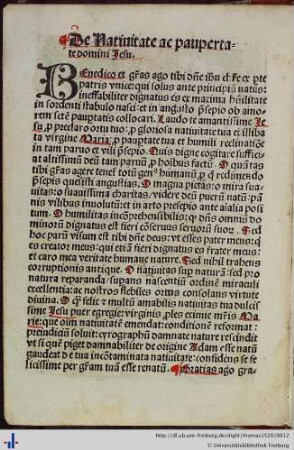 De Natiuitate ac pauperta-
te domini Iesu.
BEnedico et gr̄as ago tibi dn̄e ihu
patris vnice: qui solus ante principiū natus:
ineffabiliter dignatus es ex maxima hūilitate
in sordenti stabulo nasci: et in angusto p̄sepio ob amo-
rem sctē paupt̄atis collocari. Laudo te amantissime Ie-
su, p̄ preclaro ortu tuo: p̄ gloriosa natiuitate tua ex illiba
ta virgine Maria: p̄ paupertate tua et humili reclinatiōne
in tam paruo et vili p̄sepio. Quis digne cogitare suffici-
at altissimū deū tam paruū p̄ hoībus factū. O quātas
tibi gr̄as agere tenet̄ totū gen⁹ humanū
p̄sepis quesisti angustias. O magna pietas: o mira sua-
uitas: o suauissima charitas: videre deū puerū natū: pan-
nis vilibus inuolutū: et in arto presepio ante aīalia posi
tum. O humilitas incōprehensibilis: q̄ dn̄s omniū do-
minorū dignatus est fieri cōseruus seruorū suor̄. Sed
hoc parū visum est tibi dn̄e deus: vt esses pater meus: q̄
es creator meus: qui etiā fieri dignatus es frater meus:
et caro mea veritate humane nature. Sed nihil trahens
corruptionis antique. O natiuitas sup̄ naturā: sed pro
natura reparanda: supans nascentiū ordinē miraculi
excellentia: ac nostros flebiles ortus consolans virtute
diuina. O q̄ felix et multū amabilis natiuitas tua dulcis-
sime Iesu puer egregie: virginis p̄les eximie mr̄is Ma-
rie: que oīm natiuitatē emendat: conditionē reformat:
preiudiciū soluit: cyrographū damnate nature rescindit
vt si quē piget damnabiliter de origine Adam esse natū
gaudeat de tua incōtaminata natiuitate: confidēs se fe-
licissime per gr̄am tuā esse renatū. Gratias ago gra-
http://dl.ub.uni-freiburg.de/diglit/thomas1520/0012
© Universitätsbibliothek Freiburg